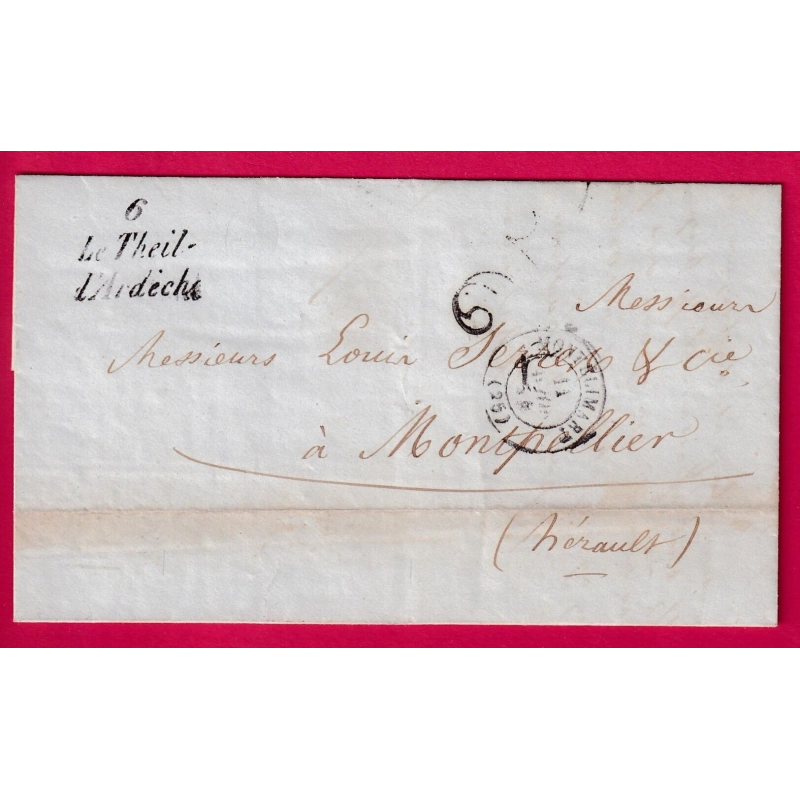 6
Le Theil-
d'Ardèche
Messieurs
Messieurs Louis Serres & Cie
à Montpellier
(hérault)
MONTELIMART
(25)
11